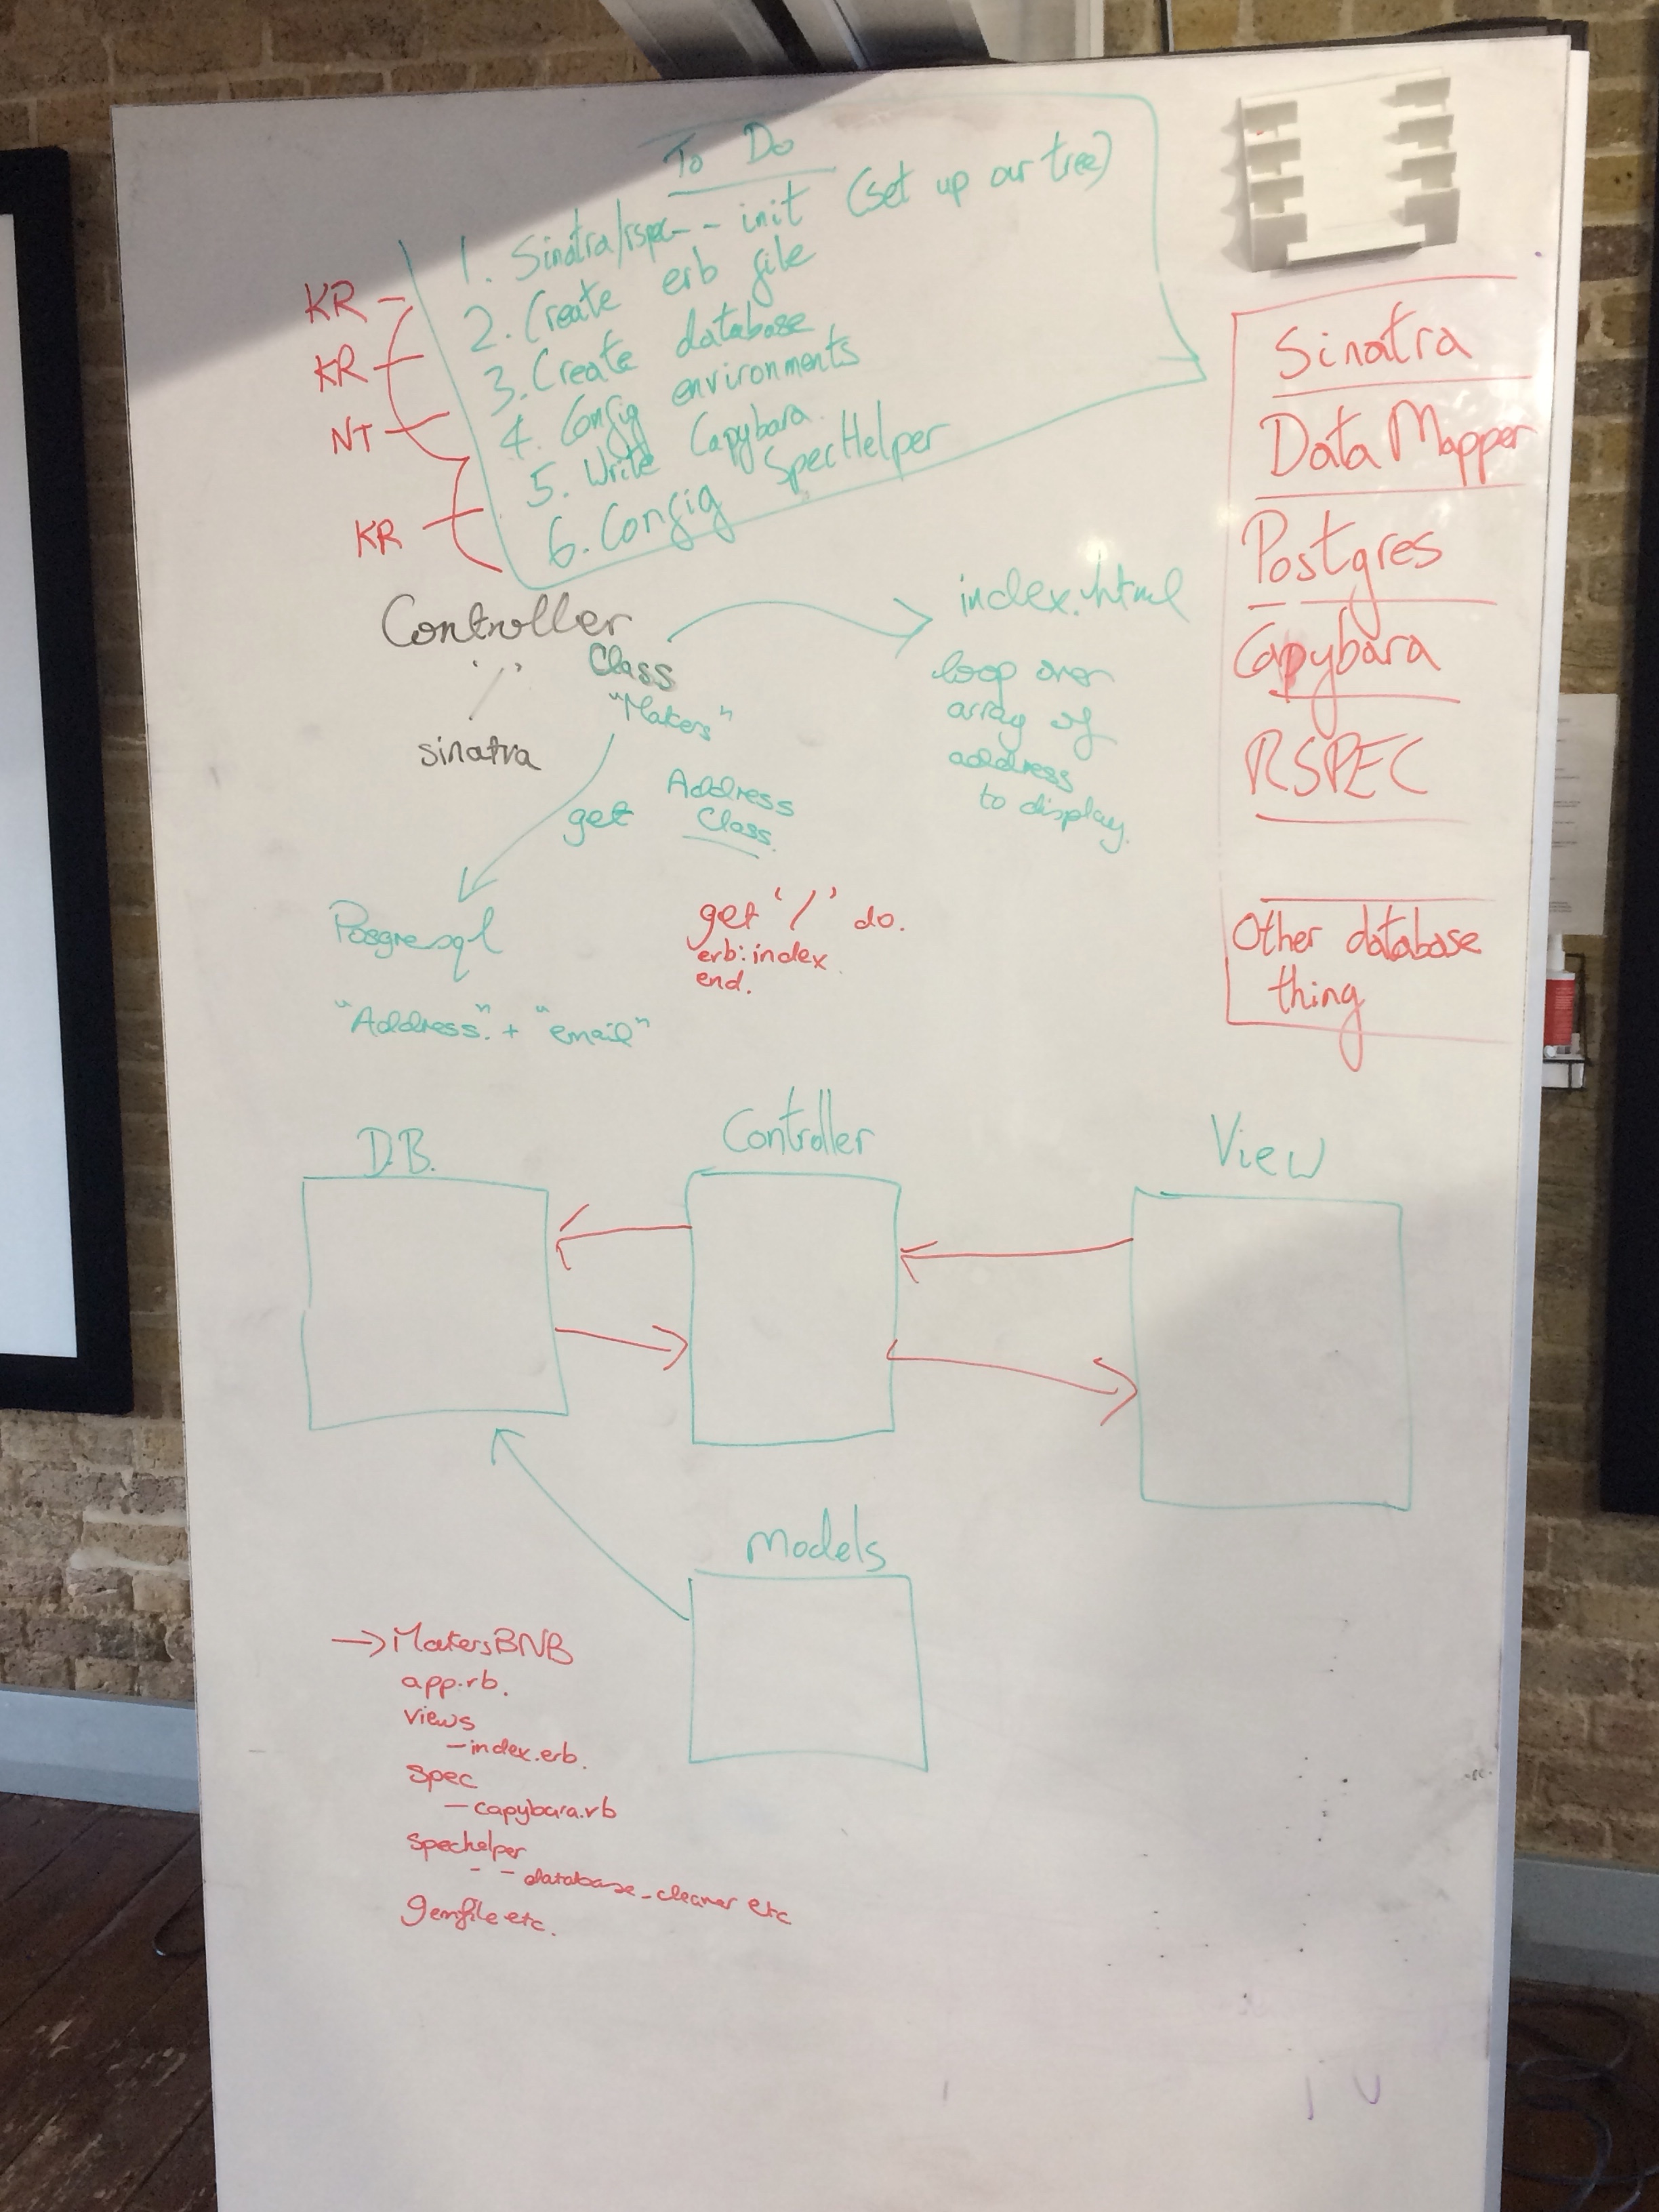 To Do
1. Sinatra/rspec -- init (set up our tree)
2. Create erb file
3. Create database
4. Config environments
5. Write Capybara
6. Config SpecHelper
KR
KR
NT
KR
Sinatra
Data Mapper
Postgres
Capybara
RSPEC
Other database
thing
Controller
sinatra
Class
"Makers"
get
Address
Class.
index.html
loop over
array of
address
to display.
Posgresql
"Address". + "email"
get '/' do.
erb:index
end.
D.B.
Controller
View
Models
→ MakersBNB
app.rb.
views
- index.erb.
spec
- capybara.rb
spechelper
- - database_cleaner etc
gemfile etc.